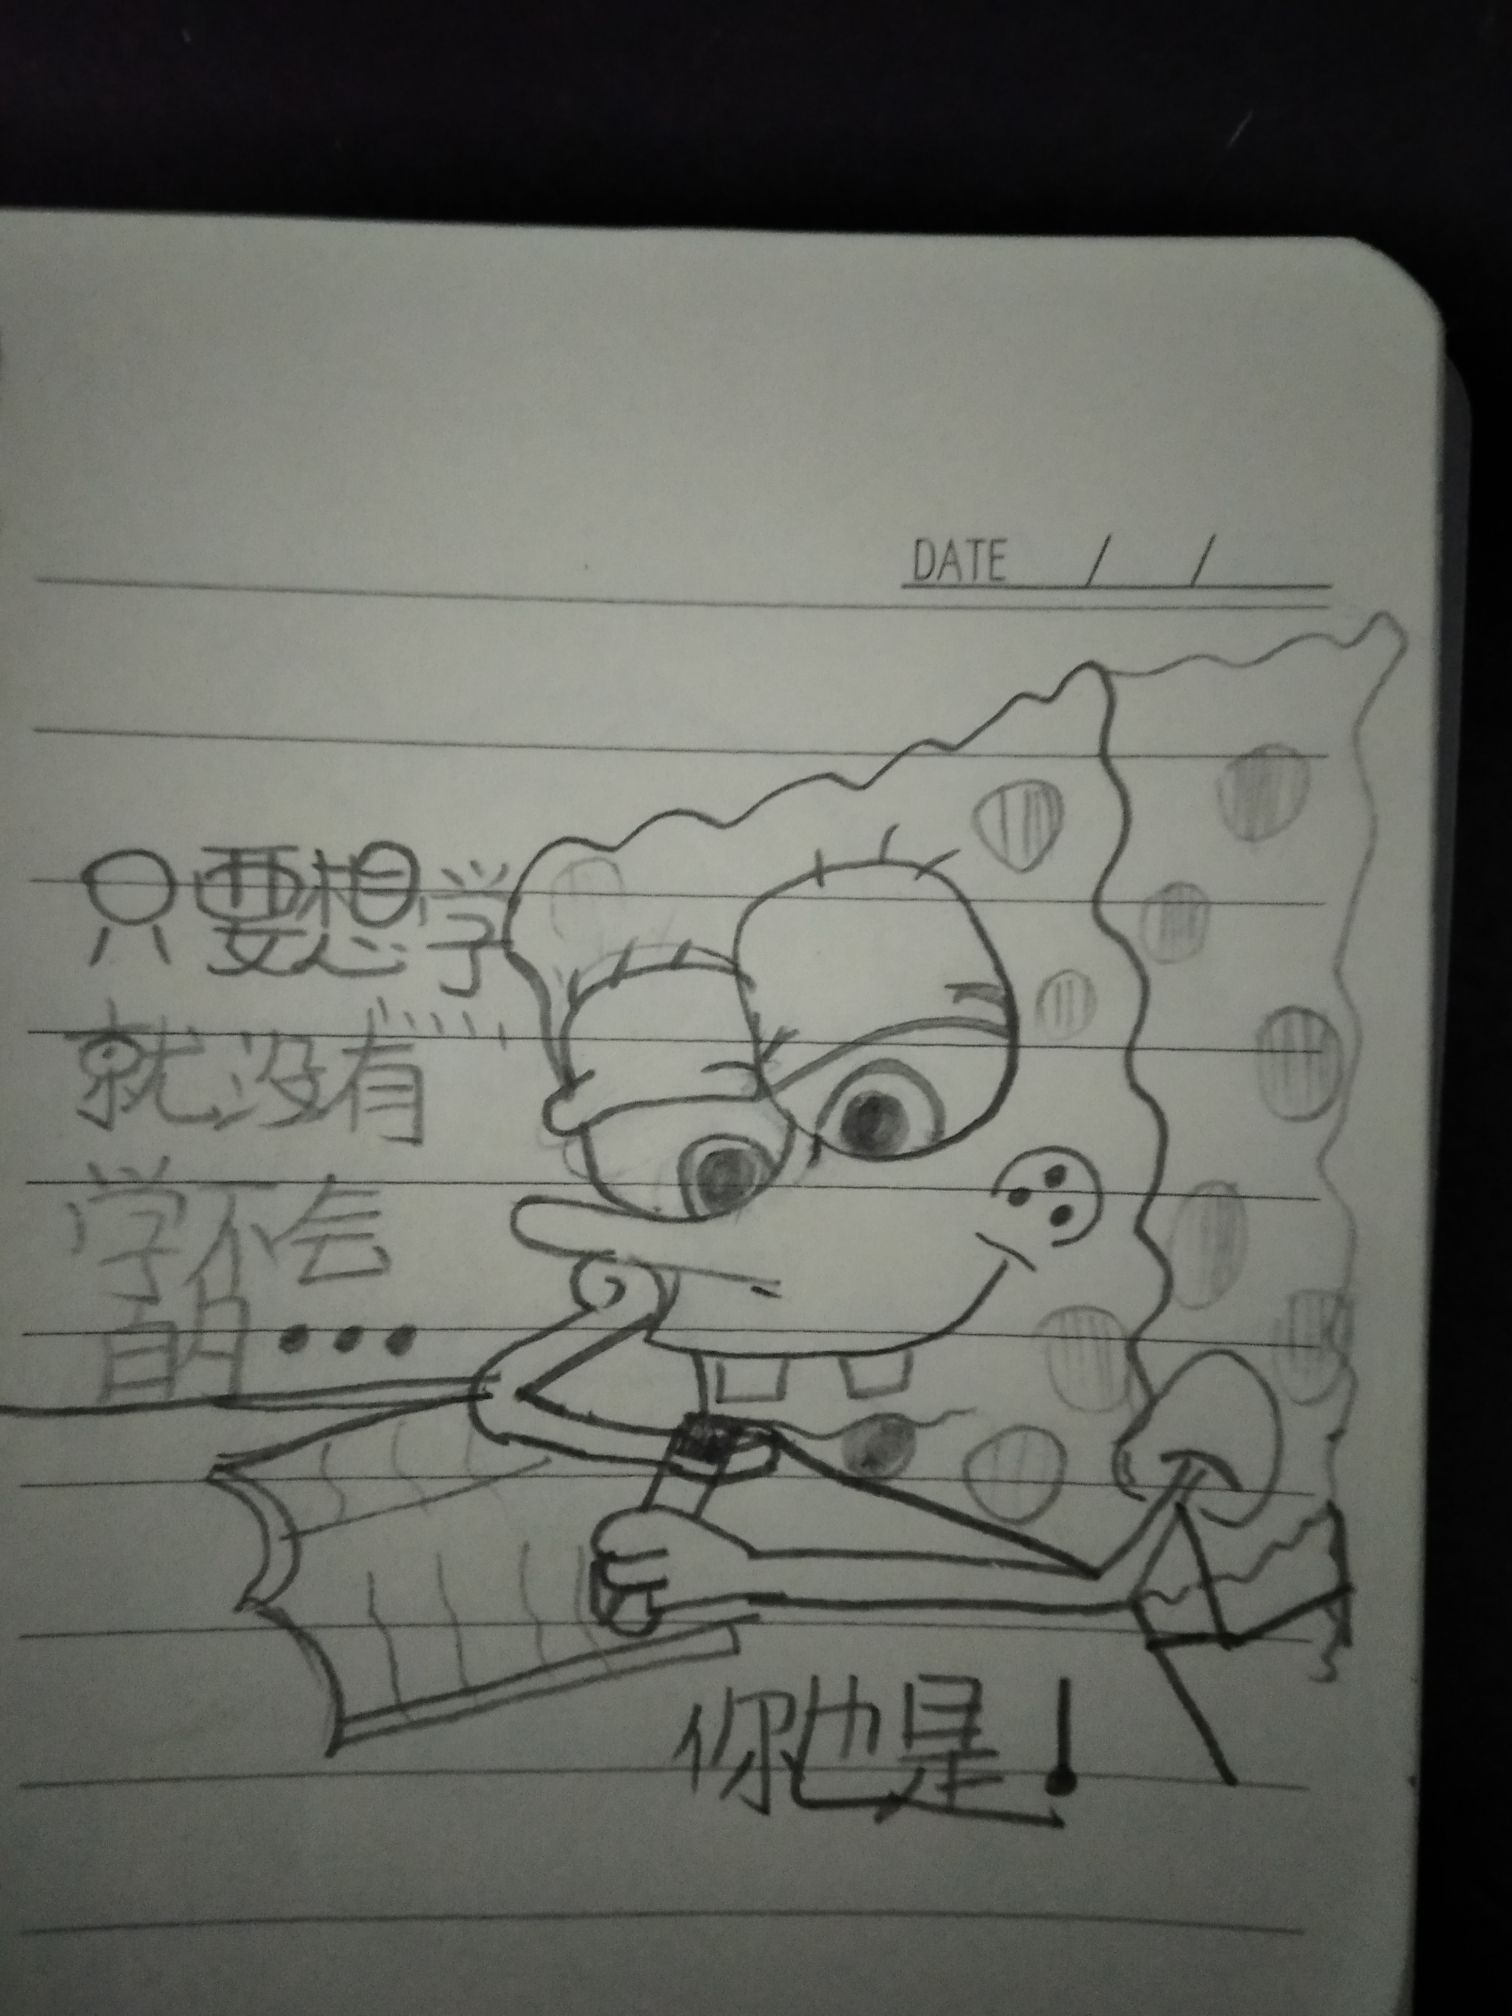 DATE / /
只要想学
就没有
学不会
的...
你也是!